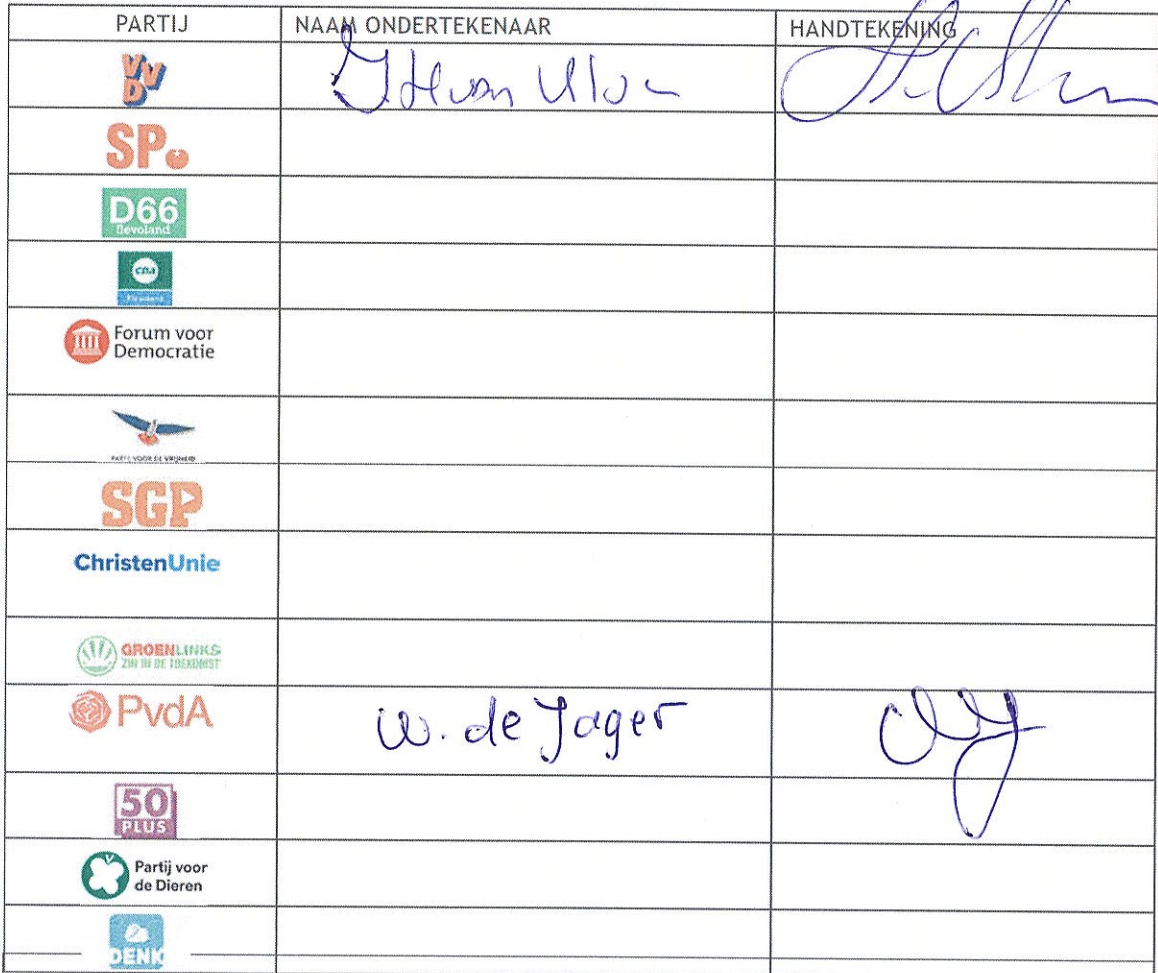 PARTIJ NAAM ONDERTEKENAAR HANDTEKENING
VVD
SP
D66
flevoland
CDA
Flevoland
Forum voor
Democratie
PARTIJ VOOR DE VRIJHEID
SGP
ChristenUnie
GROENLINKS
ZIN IN DE TOEKOMST
PvdA W. de Jager
50
PLUS
Partij voor
de Dieren
DENK